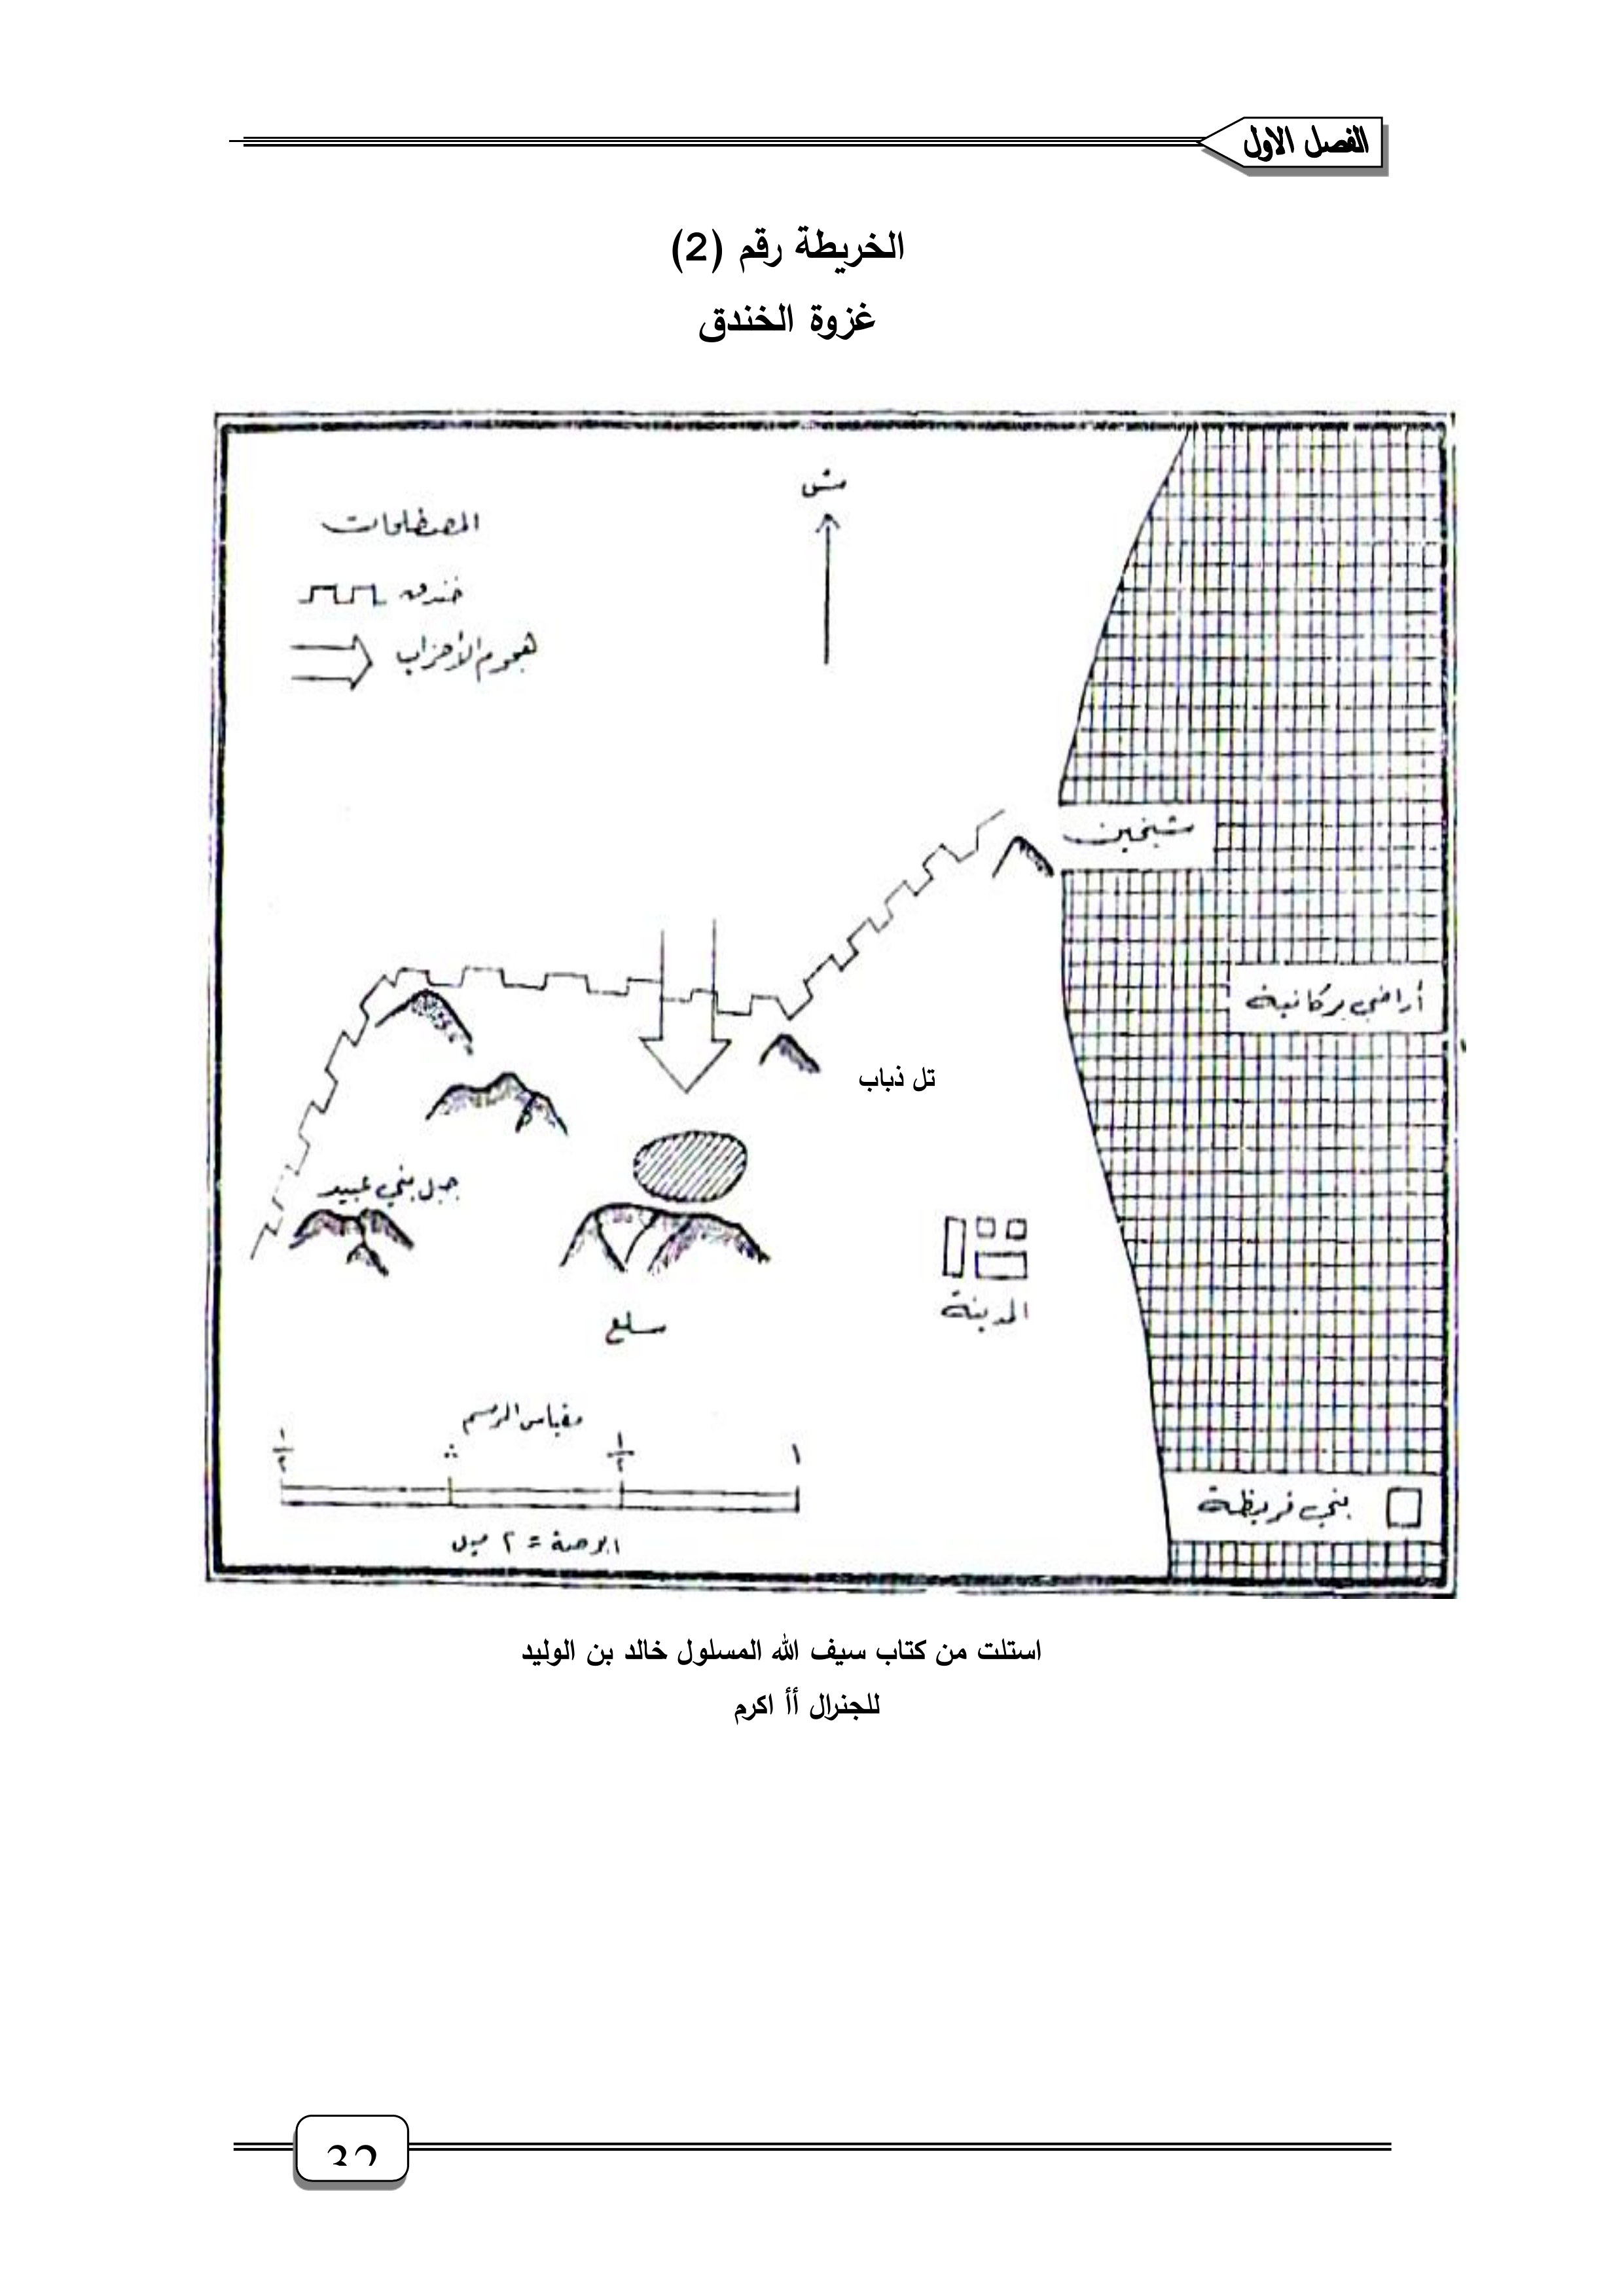 الفصل الاول
الخريطة رقم (2)
غزوة الخندق
ش
المصطلحات
خندق
هجوم الأحزاب
شيخين
أراضي بركانية
تل ذباب
جبل بني عبيد
المدينة
سلع
مقياس الرسم
١/٢ ١/٢ ١
بني قريظة
البوصة = ٢ ميل
استلت من كتاب سيف الله المسلول خالد بن الوليد
للجنرال أأ اكرم